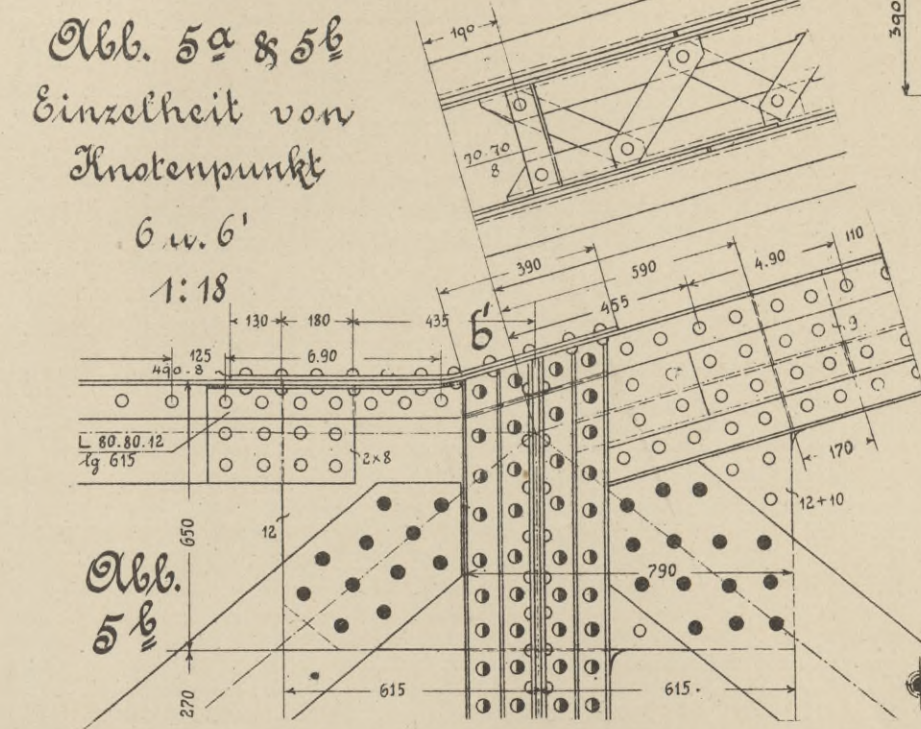 Abb. 5a & 5b
Einzelheit von
Knotenpunkt
6 u. 6'
1:18
190
390
70.70
8
390
590
4.90
110
455
6'
130
180
435
125
6.90
490.8
9
L 80.80.12
lg 615
2x8
170
12+10
12
650
790
Abb.
5b
270
615
615.